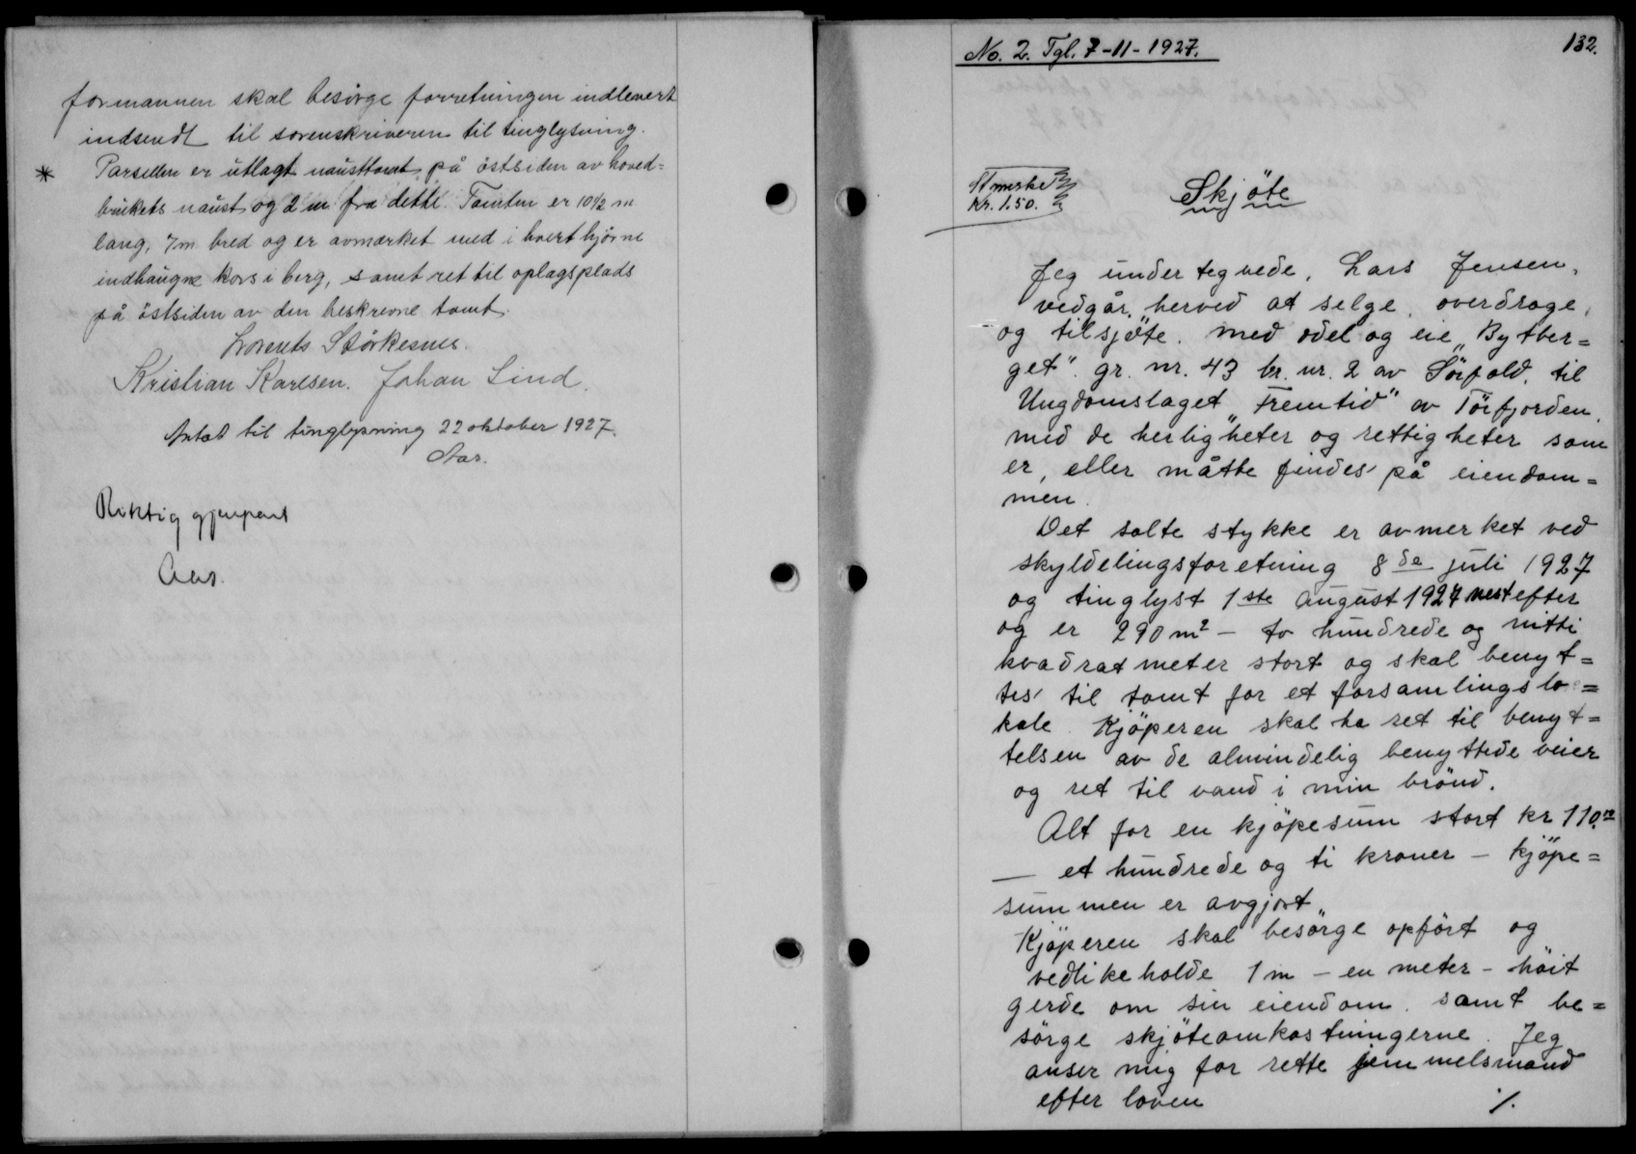 formannen skal besörge forretningen indlevert
indsendt til sorenskriveren til tinglysning.
* Parsellen er utlagt nausttomt på östsiden av hoved=
brukets naust og 2 m fra dette. Tomten er 10½ m
lang, 7 m bred og er avmærket med i hvert hjörne
indhaugne kors i berg, samt ret til oplagsplads
på östsiden av den beskrevne tomt.
Lorents Störkesnes.
Kristian Karlsen. Johan Lind.
Antat til tinglysning 22 oktober 1927.
Aar.
Riktig gjenpart
Aar.
No. 2. Tgl. 7-11-1927.
132.
St.merke
kr. 1.50.
Skjöte
Jeg undertegnede, Lars Jensen,
vedgår herved at selge, overdrage,
og tilsjöte med odel og eie „Bytber=
get". gr. nr. 43 br. nr. 2 av Sörfold, til
Ungdomslaget „Fremtid" av Törfjorden,
med de herligheter og rettigheter som
er, eller måtte findes på eiendom=
men.
Det solte stykke er avmerket ved
skyldelingsforetning 8de juli 1927
og tinglyst 1ste august 1927 nestefter
og er 290 m² – to hundrede og nitti
kvadratmeter stort og skal benyt=
tes til tomt for et forsamlingslo=
kale. Kjöperen skal ha ret til benyt=
telsen av de almindelig benyttede veier
og ret til vand i min brönd.
Alt for en kjöpesum stort kr 110.00
– et hundrede og ti kroner – kjöpe=
summen er avgjort.
Kjöperen skal besörge opfört og
vedlikeholde 1 m – en meter – höit
gerde om sin eiendom. samt be=
sörge skjöteomkostningerne. Jeg
anser mig for rette jemmelsmand
efter loven
./.